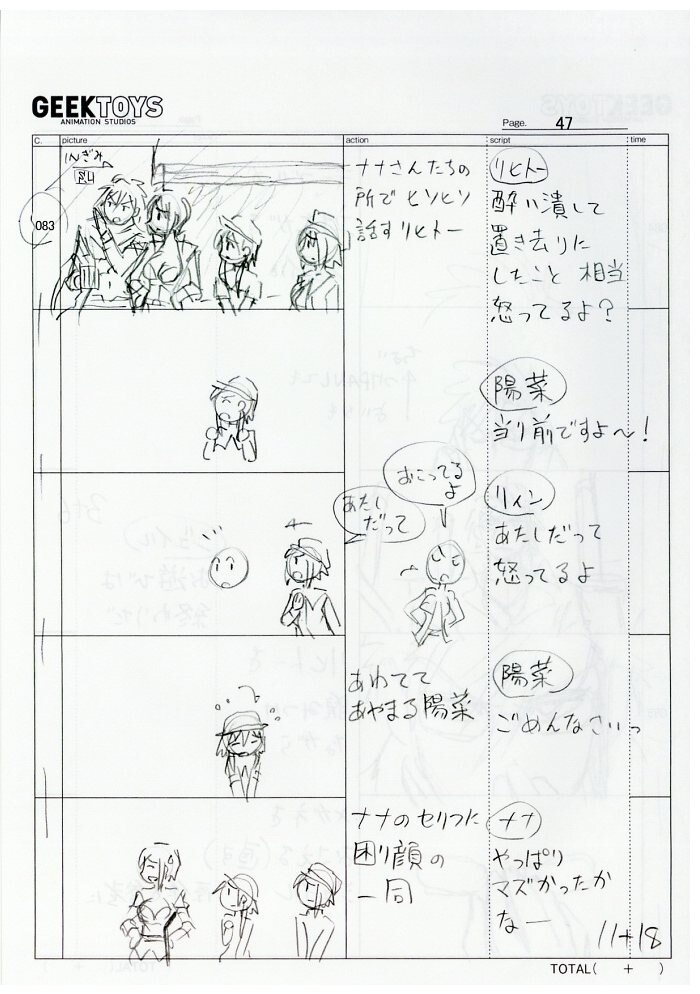 GEEKTOYS
ANIMATION STUDIOS
Page. 47
C. picture action script time
083
ナナさんたちの
所でヒソヒソ
話すリヒトー
リヒトー
酔い潰して
置き去りに
したこと 相当
怒ってるよ?
陽菜
当り前ですよ〜!
あたし
だって
おこってる
よ
リィン
あたしだって
怒ってるよ
あわてて
あやまる陽菜
陽菜
ごめんなさいっ
ナナのセリフに
困り顔の
一同
ナナ
やっぱり
マズかったか
なー
11+18
TOTAL( + )